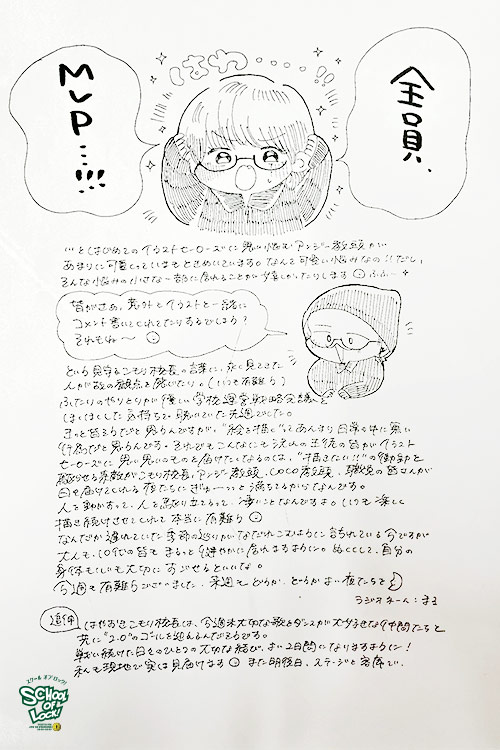 全員、
MVP…!!!
はわ・・・・!!
…とはじめてのイラストセーローズに思い悩むアンジー教頭が
あまりに可愛くっていまもときめいています。なんて可愛い悩みなの!!だし、
そんな悩みの小さな一部に居れることが嬉しかったりします ふふ…
皆がさぁ、意外とイラストと一緒に
コメント書いてくれてたりするでしょう?
それもね〜
という見守るこもり校長の言葉に、永く見てきた
人が故の観点を感じたり。(いつも有難う)
ふたりのやりとりが優しい学校運営戦略会議と
ほくほくした気持ちで聴いていた先週でした。
きっと皆そうだと思うんですが、"絵を描く"ってあんまり日常の中に無い
行為だと思うんです。それでもこんなにも沢山の生徒の皆がイラスト
セーローズに思い思いのものを届けたくなるのは、"描きたい!!"の衝動を
駆らせる素敵がこもり校長、アンジー教頭、COCO教頭、職員の皆さんが
日々届けてくれる夜たちにぎゅーーっと満ちてるからなんです。
人を動かすって、人を奮い立てるって、凄いことなんですよ。いつも楽しく
描き続けさせてくれて本当に有難う
なんだか遅れていた季節の巡りがなだれこむように訪れている今ですが
大人も、10代の皆も まるっと健やかに居れますように。ぬくくして、自分の
身体も心も大切に すごせるといいな。
今週も有難うございました、来週も どうか、どうか よい夜たちを
ラジオネーム：まる
追伸
はやおきこもり校長は、今週末大切な歌とダンスが大好きな仲間たちと
共に"2.0"のゴールを迎えるんだそうです。
戦い続けた日々のひとつの大切な結び、よい2日間になりますように!
私も現地で実は見届けます また明後日、ステージと客席で。
スクール オブ ロック!
SCHOOL
OF
LOCK!